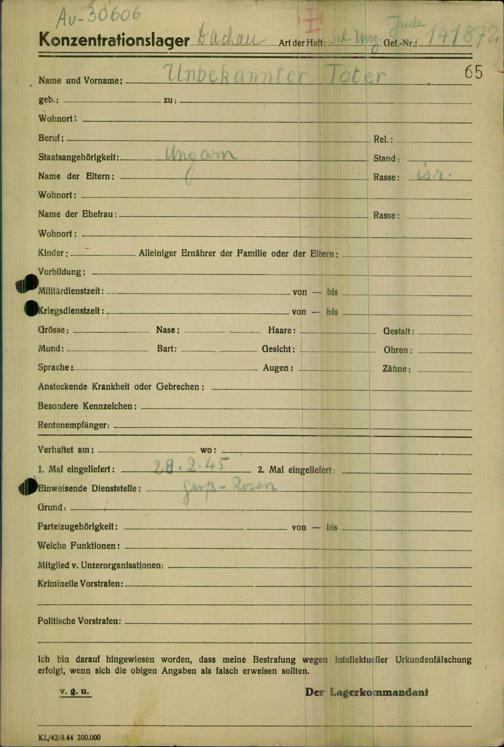 Au-30606
Konzentrationslager Dachau Art der Haft: Sch. Ung. Jude Gef.-Nr.: 141872
65
Name und Vorname: Unbekannter Toter
geb.: zu:
Wohnort:
Beruf: Rel.:
Staatsangehörigkeit: Ungarn Stand:
Name der Eltern: Rasse: isr.
Wohnort:
Name der Ehefrau: Rasse:
Wohnort:
Kinder: Alleiniger Ernährer der Familie oder der Eltern:
Vorbildung:
Militärdienstzeit: von — bis
Kriegsdienstzeit: von — bis
Grösse: Nase: Haare: Gestalt:
Mund: Bart: Gesicht: Ohren:
Sprache: Augen: Zähne:
Ansteckende Krankheit oder Gebrechen:
Besondere Kennzeichen:
Rentenempfänger:
Verhaftet am: wo:
1. Mal eingeliefert: 28.2.45 2. Mal eingeliefert:
Einweisende Dienststelle: Groß-Rosen
Grund:
Parteizugehörigkeit: von — bis
Welche Funktionen:
Mitglied v. Unterorganisationen:
Kriminelle Vorstrafen:
Politische Vorstrafen:
Ich bin darauf hingewiesen worden, dass meine Bestrafung wegen intellektueller Urkundenfälschung
erfolgt, wenn sich die obigen Angaben als falsch erweisen sollten.
v. g. u. Der Lagerkommandant
KL/42/8.44 200.000